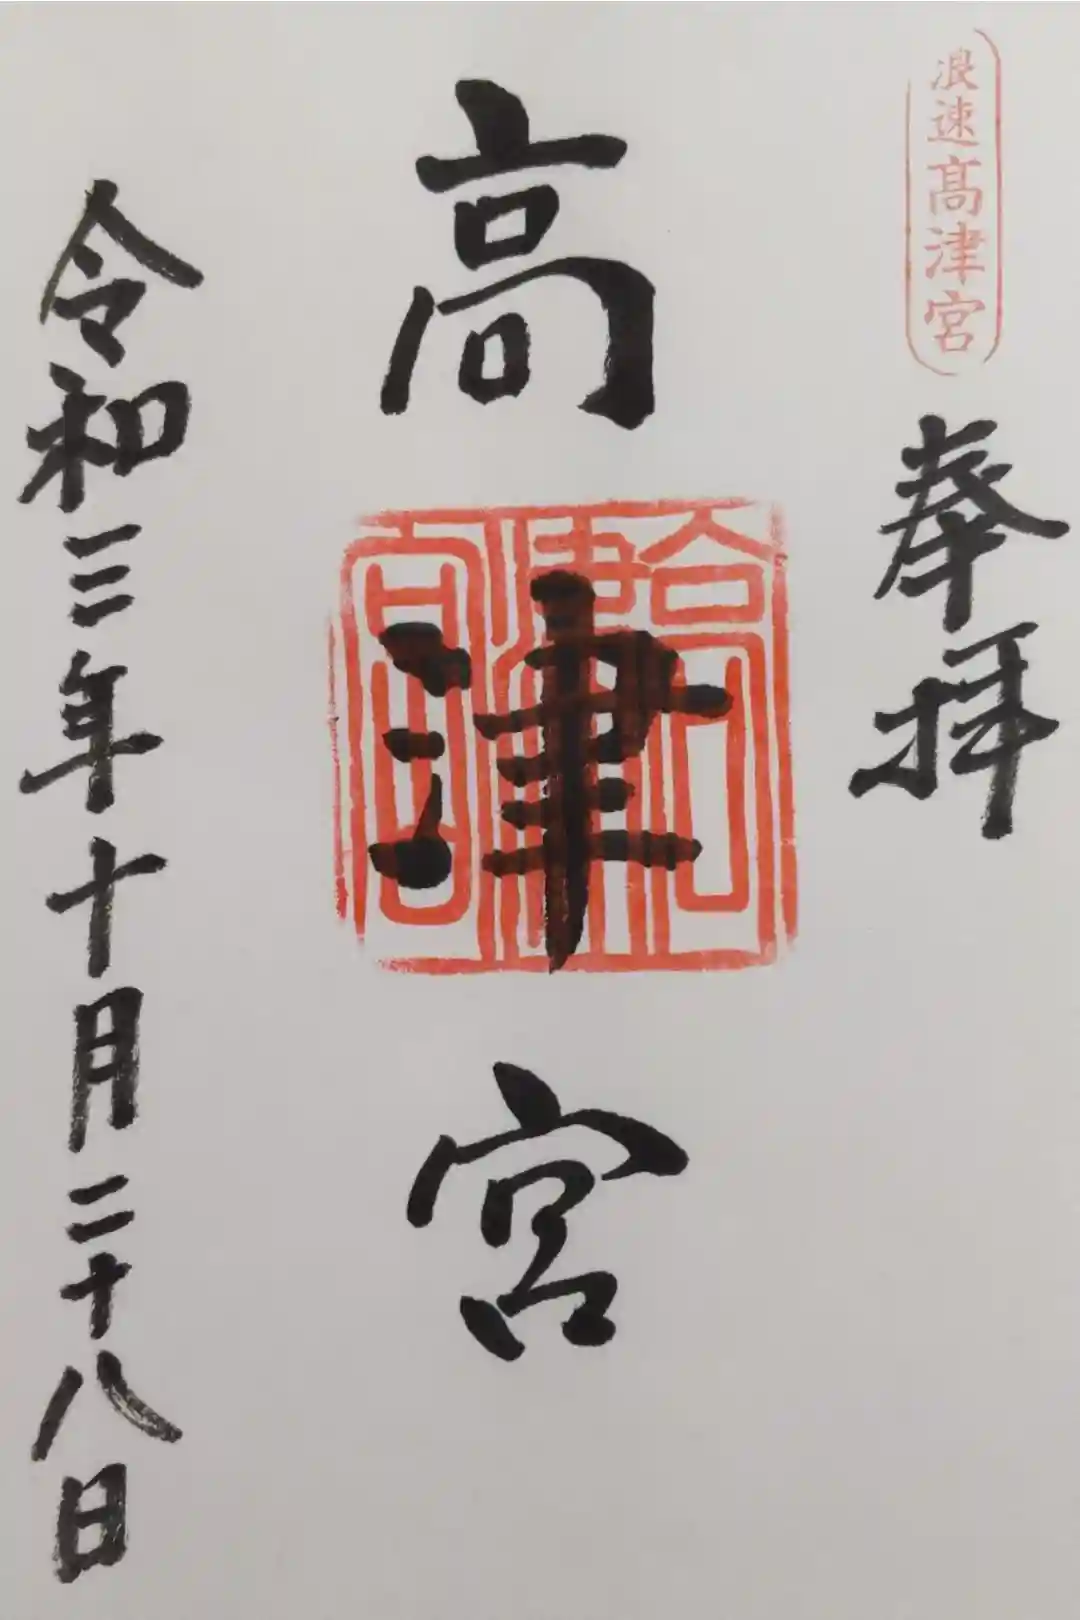 浪速高津宮
奉拝
高津宮
高津宮
令和三年十月二十八日